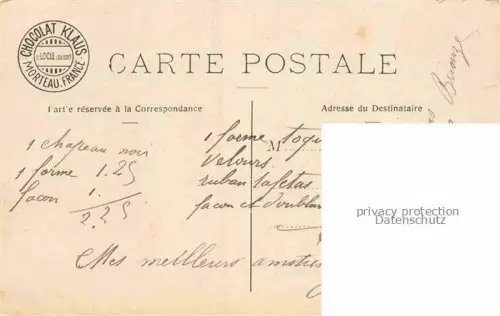 CHOCOLAT KLAUS
LE LOCLE (SUISSE)
MORTEAU. FRANCE
CARTE POSTALE
Partie réservée à la Correspondance
Adresse du Destinataire
1 chapeau noir
1 forme 1.25
façon 1.
2.25
M
1 forme toqu
velours
ruban tafetas
façon et doublur
Mes meilleurs
privacy protection
Datenschutz